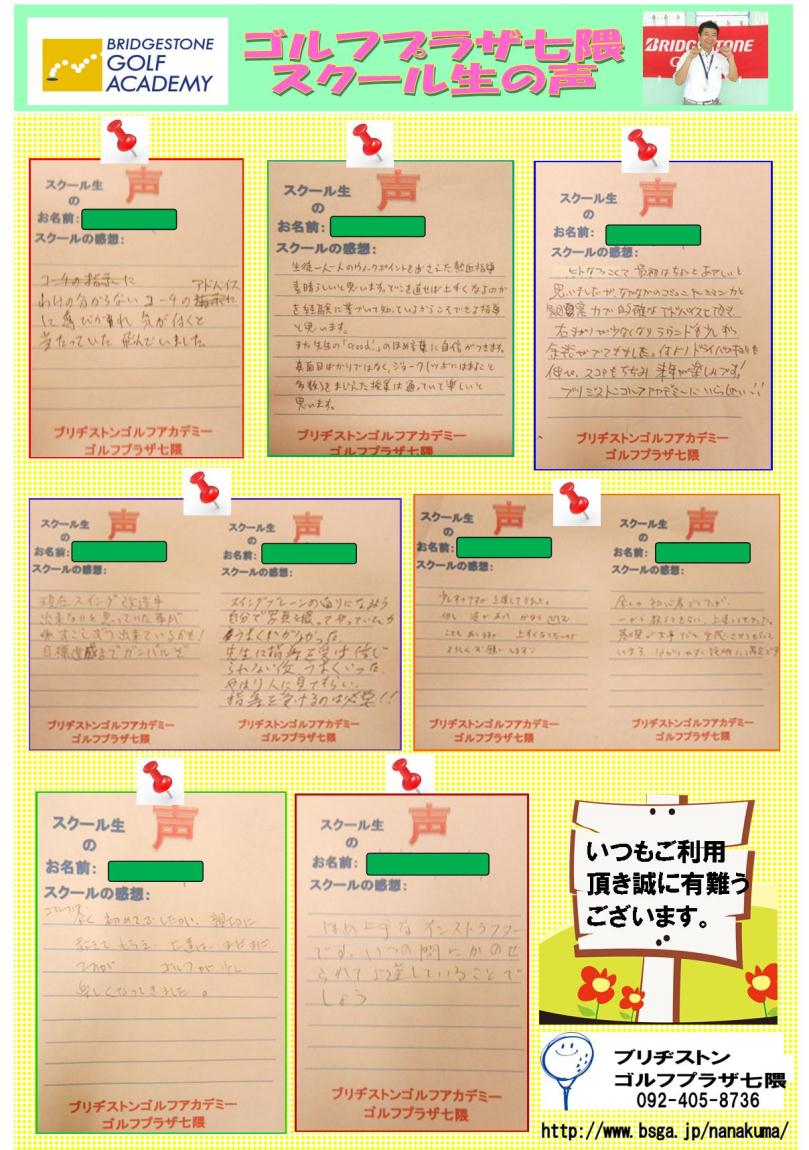 BRIDGESTONE
GOLF
ACADEMY
ゴルフプラザ七隈
スクール生の声
BRIDGESTONE
GOL
スクール生
の
声
お名前:
スクールの感想:
コーチの指示に
アドバイス
わけの分からない コーチの指示
に 気が付くと
当たっていた 飛んでいました
ブリヂストンゴルフアカデミー
ゴルフプラザ七隈
スクール生
の
声
お名前:
スクールの感想:
生徒一人一人のウィークポイントをおさえた熱血指導
素晴らしいと思います。どこを直せば上手くなるのか
を経験に基づいて知っているからこそできる指導
と思います。
また先生の「Good!」のほめ言葉に自信がつきます。
真面目ばかりではなく、ジョーク(ツボにはまること
多数)をまじえた授業は通っていて楽しいと
思います。
ブリヂストンゴルフアカデミー
ゴルフプラザ七隈
スクール生
の
声
お名前:
スクールの感想:
最初はちょっとあやしいと
思いましたが、なかなかのコミュニケーション力と
観察力で的確なアドバイスで
右まがりが少なくなりラウンドも少し
飛距離を
伸ばし、スコアもちぢみ 来年が楽しみです!
ブリヂストンゴルフアカデミーにいらっしゃい!!
ブリヂストンゴルフアカデミー
ゴルフプラザ七隈
スクール生
の
声
お名前:
スクールの感想:
現在スイング改造中
出来ないと思っていた事が
少しずつ出来ているかも!
目標達成までガンバルぞ
ブリヂストンゴルフアカデミー
ゴルフプラザ七隈
スクール生
の
声
お名前:
スクールの感想:
スイングプレーンの通りになるよう
自分で写真を撮ってやっていたが
うまくいかなかった。
先生に指導を受け信じ
られない位、うまくいった。
やはり人に見てもらい、
指導を受けるのは必要!!
ブリヂストンゴルフアカデミー
ゴルフプラザ七隈
スクール生
の
声
お名前:
スクールの感想:
少しずつですが上達してきました。
よろしくお願いします
ブリヂストンゴルフアカデミー
ゴルフプラザ七隈
スクール生
の
声
お名前:
スクールの感想:
全くの初心者でしたが
一から教えてもらい、上達できました。
基礎が大事だと
います 分かりやすい説明に満足です
ブリヂストンゴルフアカデミー
ゴルフプラザ七隈
スクール生
の
声
お名前:
スクールの感想:
ゴルフは、
全く初めてでしたが、親切に
教えてもらえ 上達は、まだまだ
ですが ゴルフが少し
楽しくなってきました。
ブリヂストンゴルフアカデミー
ゴルフプラザ七隈
スクール生
の
声
お名前:
スクールの感想:
ほめ上手なインストラクター
です。いつの間にかのせ
られて上達していることで
しょう
ブリヂストンゴルフアカデミー
ゴルフプラザ七隈
いつもご利用
頂き誠に有難う
ございます。
ブリヂストン
ゴルフプラザ七隈
092-405-8736
http://www.bsga.jp/nanakuma/